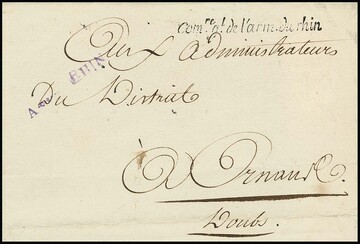 Com.re g.l de l'arm. du rhin
Aux Administrateurs
Du District
A Ornans.
Doubs.